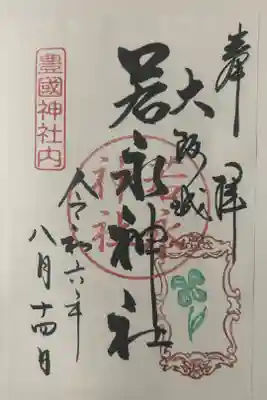 奉拝
大阪城
若永神社
豊國神社内
令和六年
八月十四日
若永神社